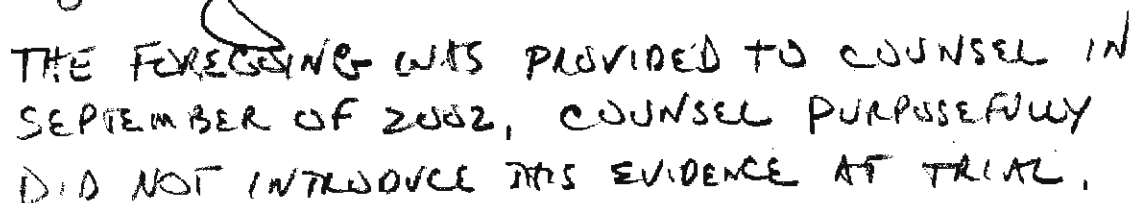 THE FOREGOING WAS PROVIDED TO COUNSEL IN
SEPTEMBER OF 2002, COUNSEL PURPOSEFULLY
DID NOT INTRODUCE THIS EVIDENCE AT TRIAL.